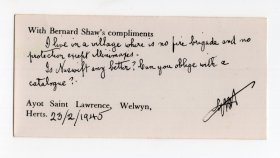 With Bernard Shaw's compliments
I live in a village where is no fire brigade and no
protection except Minimaxes.
Is Nuswift any better? Can you oblige with a
catalogue?
Ayot Saint Lawrence, Welwyn,
Herts. 23/2/1945